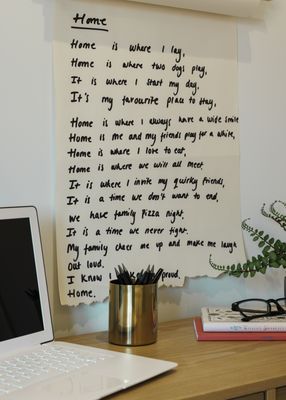 Home
Home is where I lay,
Home is where two dogs play,
It is where I start my day,
It's my favourite place to stay,
Home is where I always have a wide smile
Home is me and my friends play for a while,
Home is where I love to eat,
Home is where we will all meet.
It is where I invite my quirky friends,
It is a time we don't want to end.
We have family Pizza night,
It is a time we never fight.
My family cheer me up and make me laugh
Out loud.
I know I proud.
Home.